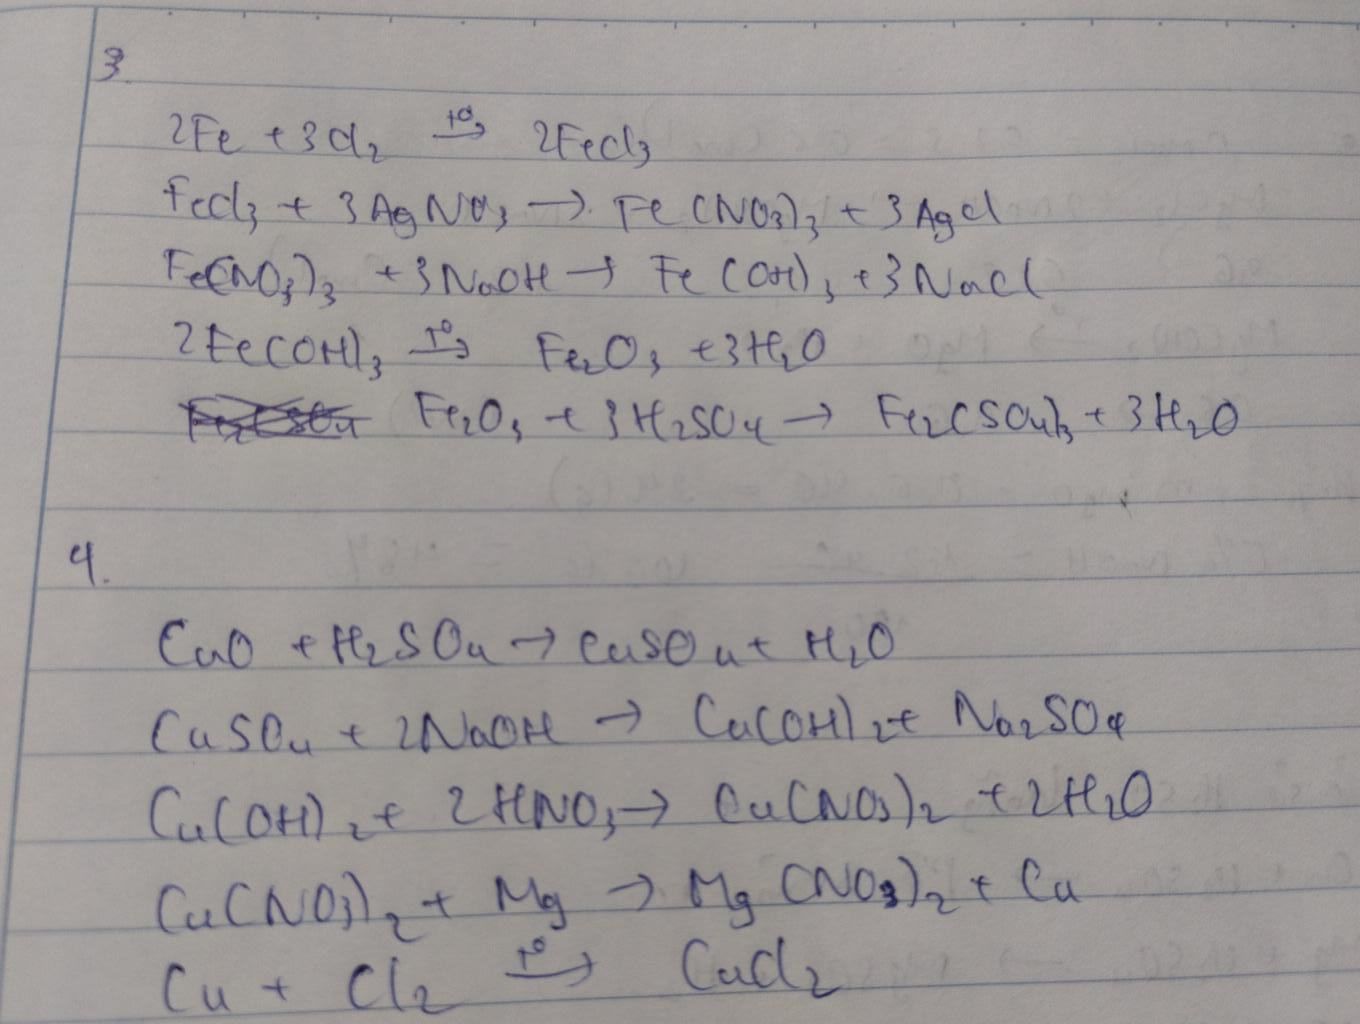 3.
2Fe + 3Cl₂ t°→ 2FeCl₃
FeCl₃ + 3AgNO₃ → Fe(NO₃)₃ + 3AgCl
Fe(NO₃)₃ + 3NaOH → Fe(OH)₃ + 3NaCl
2Fe(OH)₃ t°→ Fe₂O₃ + 3H₂O
Fe₂O₃ + 3H₂SO₄ → Fe₂(SO₄)₃ + 3H₂O
4.
CuO + H₂SO₄ → CuSO₄ + H₂O
CuSO₄ + 2NaOH → Cu(OH)₂ + Na₂SO₄
Cu(OH)₂ + 2HNO₃ → Cu(NO₃)₂ + 2H₂O
Cu(NO₃)₂ + Mg → Mg(NO₃)₂ + Cu
Cu + Cl₂ t°→ CuCl₂